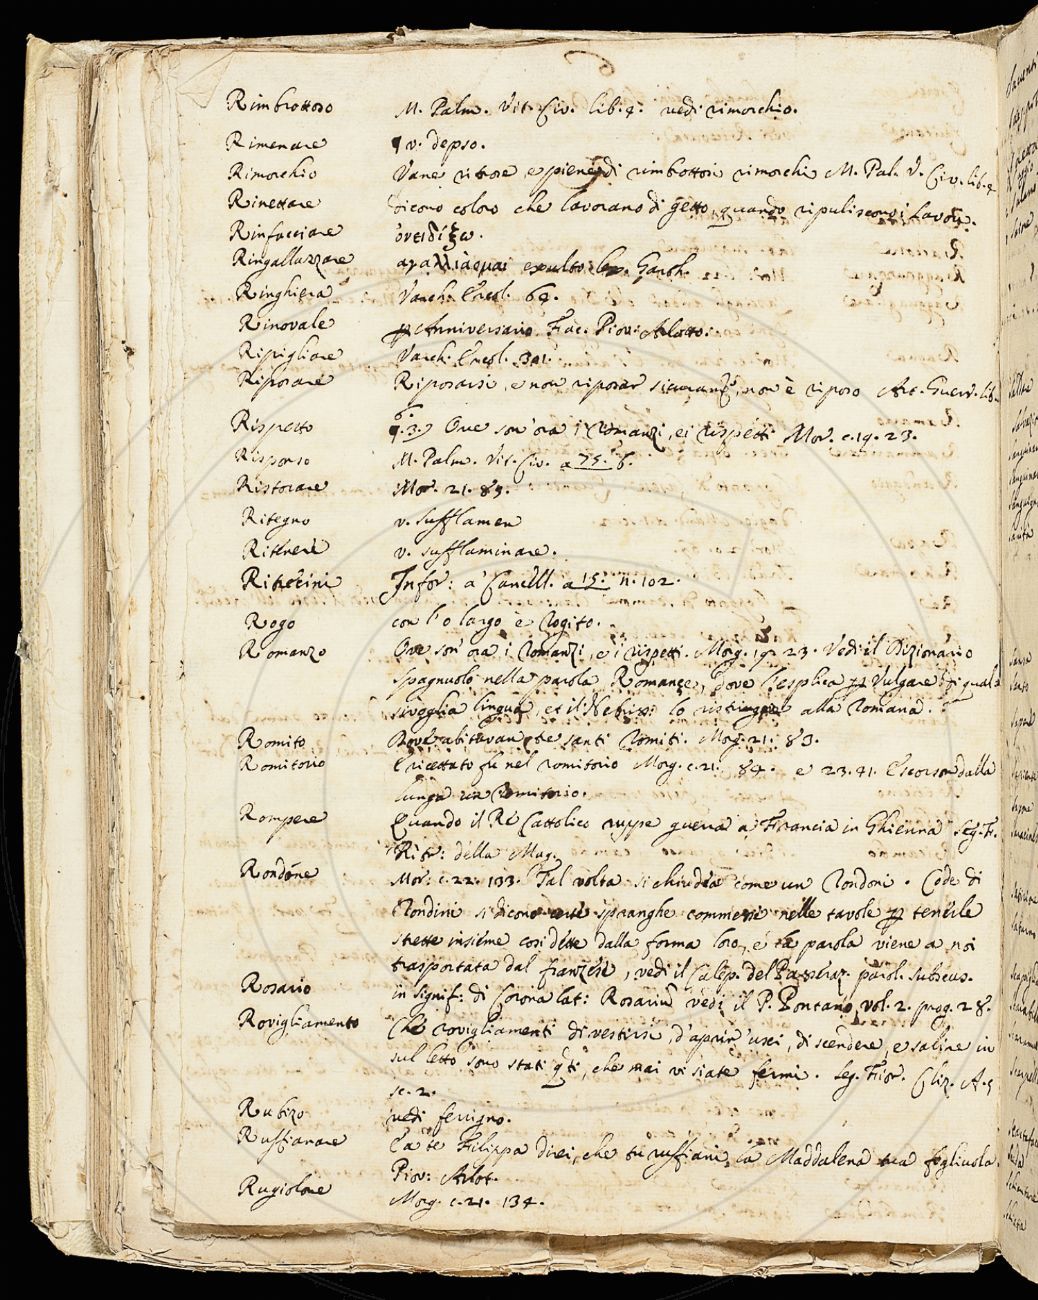 Rimbrottoso M. Palm. Vit. Civ. lib. 4. vedi rimorchio.
Rimenare v. depso.
Rimorchio Vane ritrose e piene di rimbrottosi rimorchi M. Pal. V. Civ. lib. 4
Rinettare dicono coloro che lavorano di getto quando ripuliscono i lavori.
Rinfacciare ὀνειδίζω.
Ringalluzzare αγαλλιάομαι exulto
Ringhiera Varch. Ercol. 64.
Rinovale Anniversario Fac. Piov: Arlotto.
Ripigliare Varch. Ercol. 301.
Riposare Riposarsi, e non riposar sicuramte, non è riposo Art. Guerr. lib.
6.
Rispetto Ove son' ora i romanzi, ei rispetti Mor. c. 19. 23.
Risponso M. Palm. Vit. Civ. a 75. 6.
Ristorare Mor. 21. 89.
Ritegno v. sufflamen
Ritenere v. sufflaminare.
Ritretini Infor: a' Cancell. a 15. n. 102.
Rogo con l'o largo è Rogito.
Romanzo Ove son' ora i Romanzi, e i rispetti. Morg. 19. 23. Vedi il Dizionario
Spagnuolo nella parola Romance, dove l'esplica Vulgare qual
sivoglia lingua, et il Nebriss: lo ristringne alla Romana.
Romito Dove abitavan tre santi Romiti. Morg. 21. 83.
Romitorio E ricettato fu nel romitorio Morg. c. 21. 84. e 23. 41. E scorson dalla
lunga un Romitorio.
Rompere Quando il Re Cattolico ruppe guerra a Francia in Ghienna Seg. F.
Ritr: della Mag.
Rondone Mor: c. 22. 133. Tal volta si chiudea come un Rondoni. Code di
Rondini si dicono spranghe commesse nelle tavole tenerle
strette insieme cosi dette dalla forma loro, e la parola viene a noi
trasportata dal franzese, vedi il Calep. del Passeraz. parol. subscus.
Rosario in signif: di Corona lat: Rosariu vedi il P. Pontano vol. 2. prog. 28.
Rovigliamento Che rovigliamenti di vestirsi, d'aprir' usci, di scendere, e salire in
sul letto sono stati qti, che mai vi siate fermi. Seg. Fior. Cliz. A. 5
sc. 2.
Rubizo vedi ferrigno.
Ruffianare E a te Filippa direi, che tu ruffiani la Maddalena tua figliuola.
Piov: Arlot.
Rugiolone Morg. c. 21. 134.